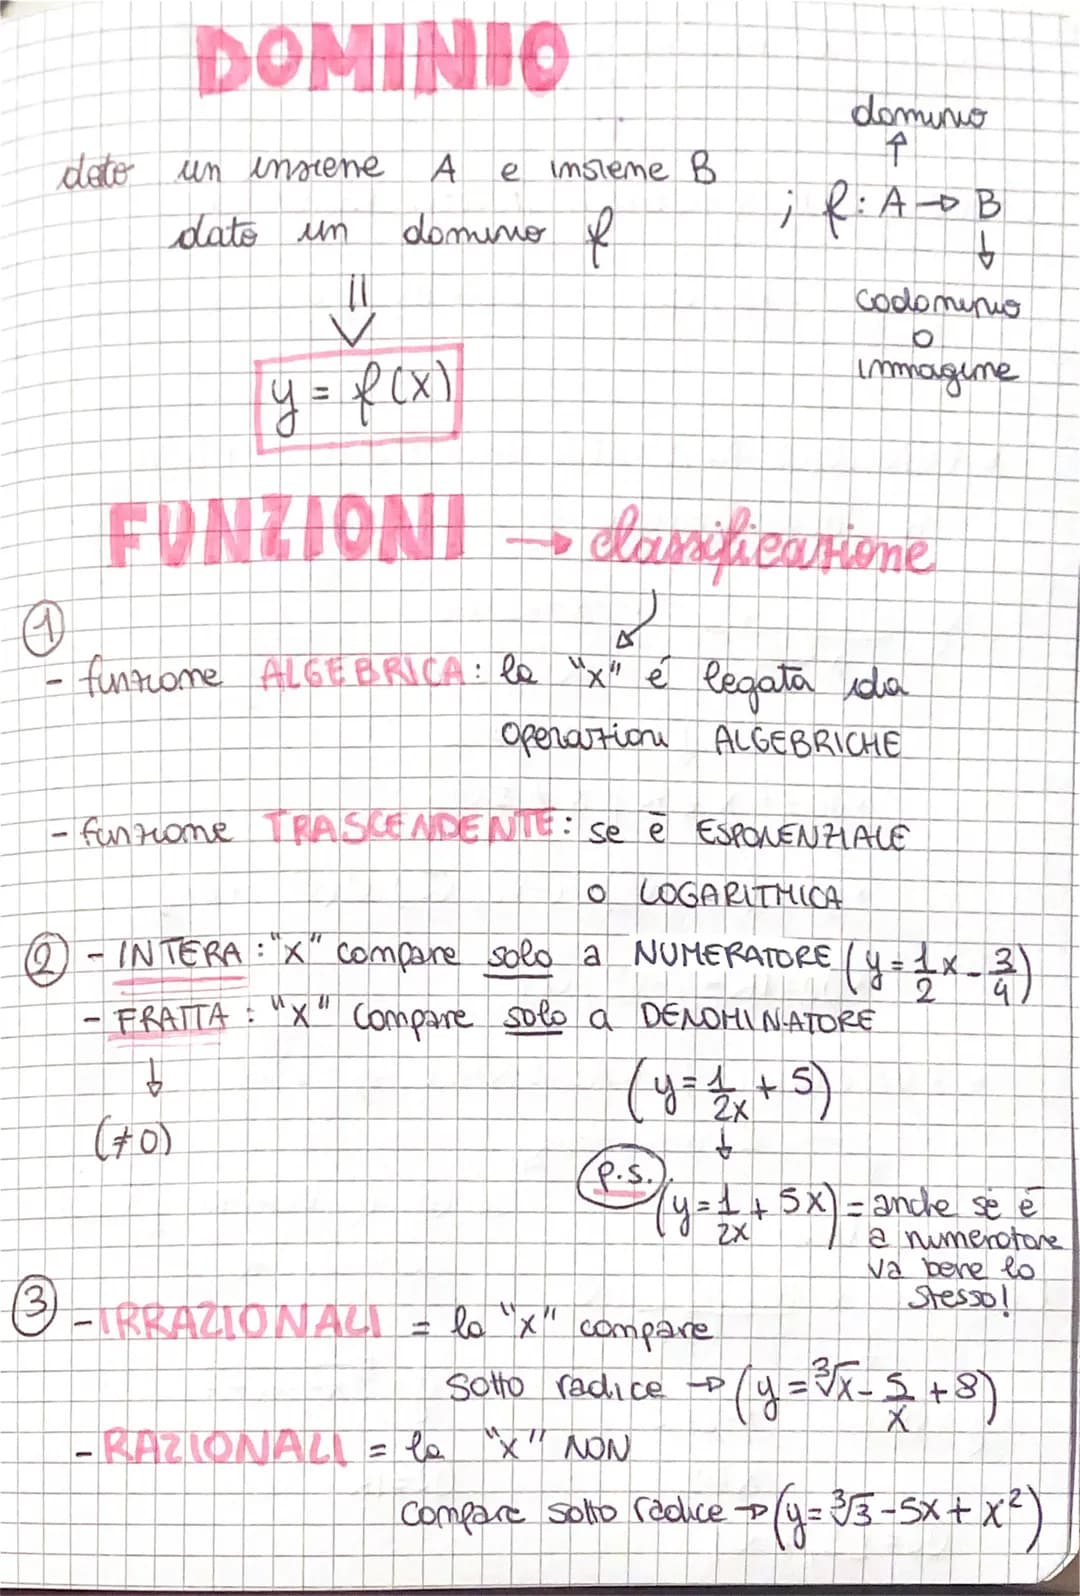 DOMINIO
dato un insieme A e insieme B ; f: A → B
dominio
↑
dato un dominio f
↓
codominio
o
immagine
⇓
y = f(x)
FUNZIONI → classificazione
①
- funzione ALGEBRICA: la "x" é legata da
operazioni ALGEBRICHE
- funzione TRASCENDENTE: se è ESPONENZIALE
o LOGARITMICA
② - INTERA: "x" compare solo a NUMERATORE (y = 1/2 x - 3/4)
- FRATTA: "x" compare solo a DENOMINATORE
↓
(≠0)
(y = 1/2x + 5)
↓
p.s. (y = 1/2x + 5x) = anche se é
a numeratore
va bene lo
stesso!
③ - IRRAZIONALI = la "x" compare
sotto radice → (y = ∛x - 5/x + 8)
- RAZIONALI = la "x" NON
compare sotto radice → (y = ∛3 - 5x + x²)